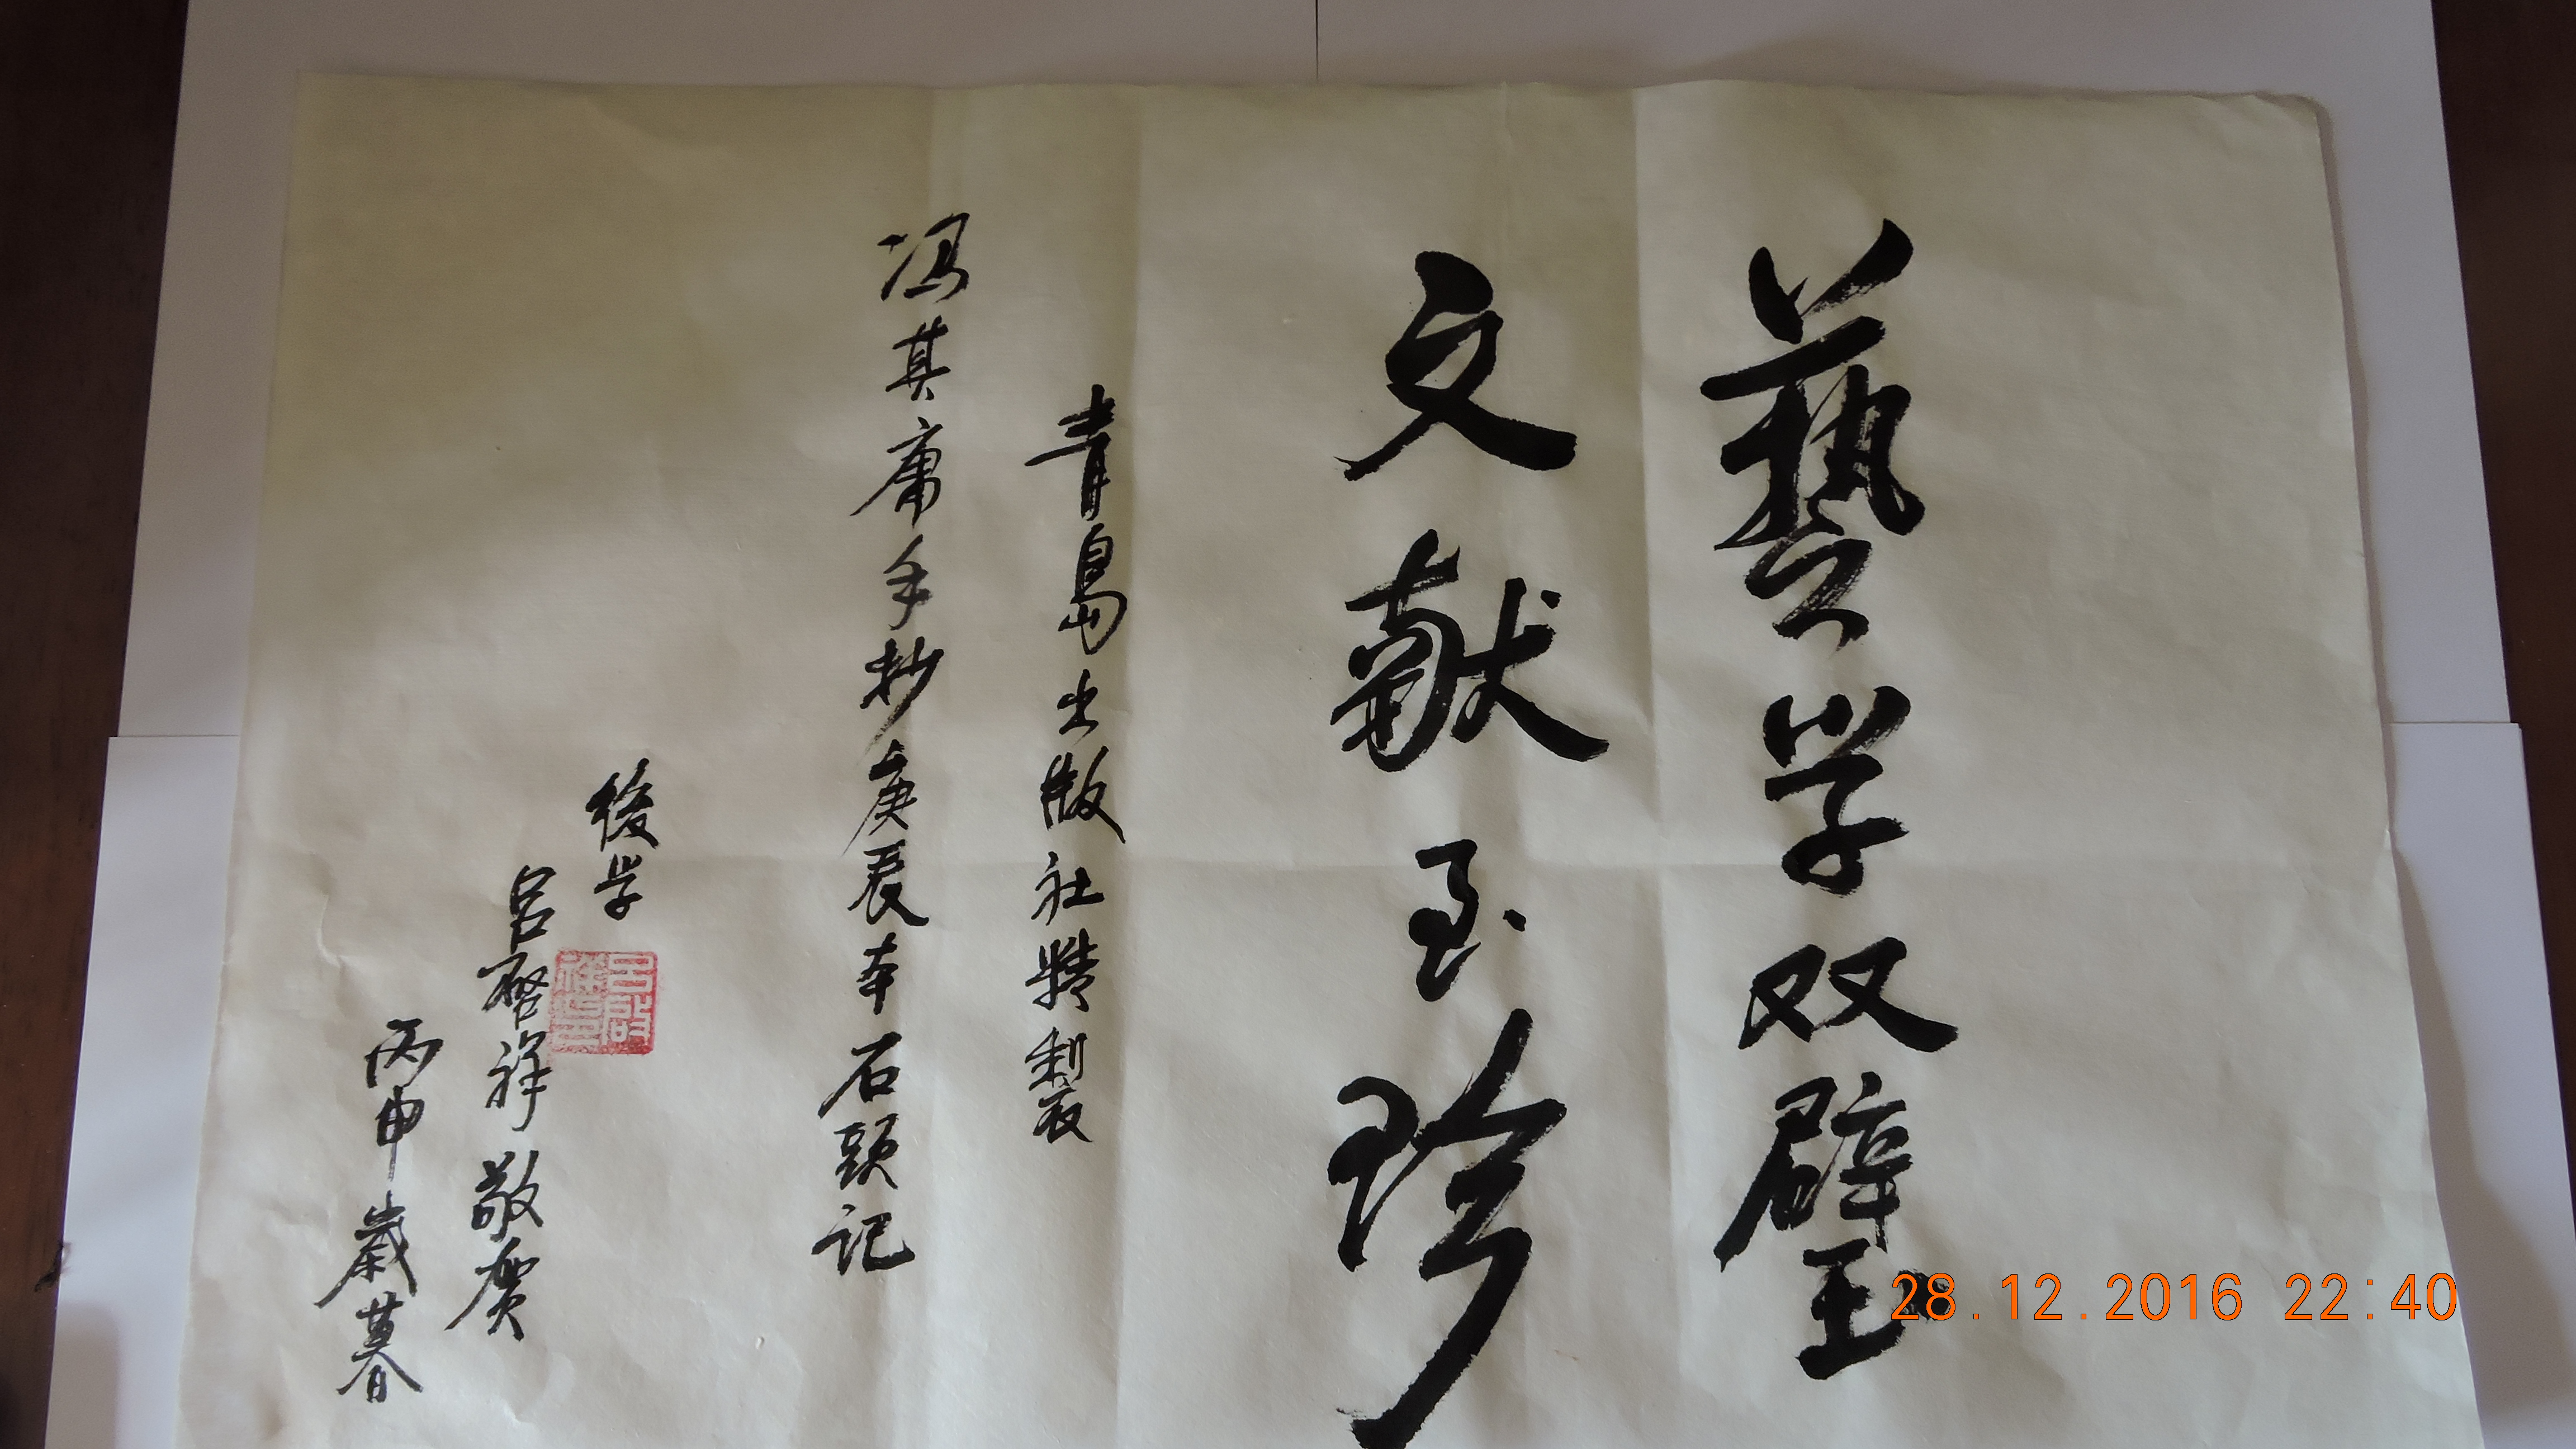 藝学双璧
文献至珍
青島出版社精製
冯其庸手抄庚辰本石頭记
後学
吕啓祥敬賀
丙申歲暮
吕啓祥印
28.12.2016 22:40